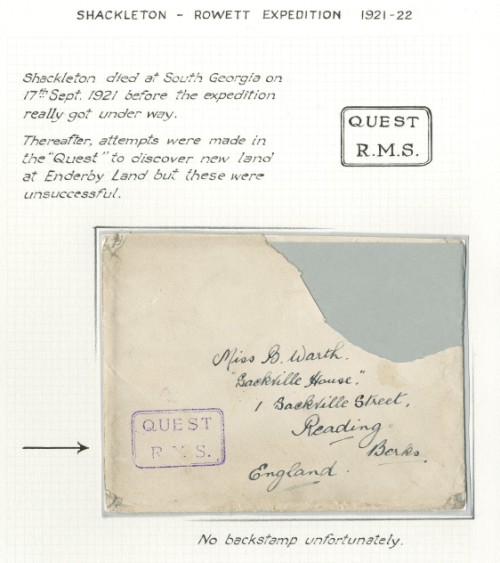 SHACKLETON - ROWETT EXPEDITION 1921-22
Shackleton died at South Georgia on
17th Sept. 1921 before the expedition
really got under way.
Thereafter, attempts were made in
the "Quest" to discover new land
at Enderby Land but these were
unsuccessful.
QUEST
R.M.S.
Miss B. Warth.
"Sackville House."
1 Sackville Street,
Reading
Berks.
England.
QUEST
R.M.S.
No backstamp unfortunately.